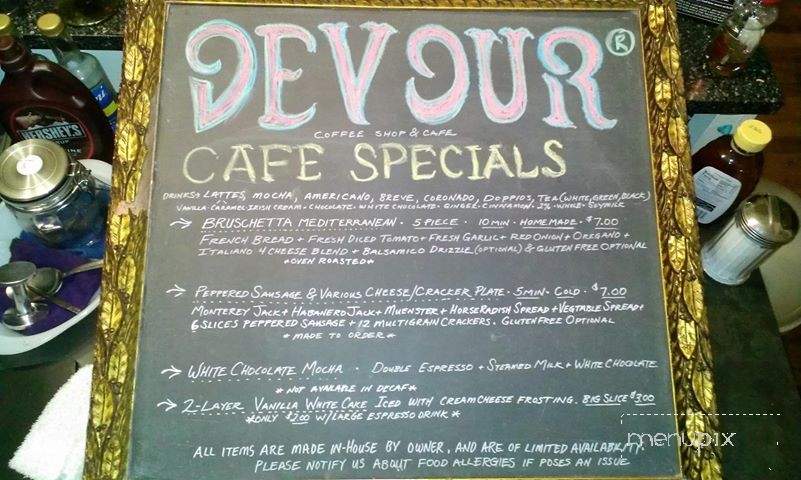 DEVOUR®
COFFEE SHOP & CAFE
CAFE SPECIALS
DRINKS → LATTES, MOCHA, AMERICANO, BREVE, CORONADO, DOPPIOS, TEA (WHITE, GREEN, BLACK)
VANILLA · CARAMEL · IRISH CREAM · CHOCOLATE · WHITE CHOCOLATE · GINGER · CINNAMON · 2% · WHOLE · SOYMILK
→ BRUSCHETTA MEDITERRANEAN · 5 PIECE · 10 MIN · HOMEMADE · $7.00
FRENCH BREAD + FRESH DICED TOMATO + FRESH GARLIC + RED ONION + OREGANO +
ITALIANO 4 CHEESE BLEND + BALSAMICO DRIZZLE (OPTIONAL) & GLUTEN FREE OPTIONAL
*OVEN ROASTED*
→ PEPPERED SAUSAGE & VARIOUS CHEESE/CRACKER PLATE · 5 MIN · COLD · $7.00
MONTEREY JACK + HABANERO JACK + MUENSTER + HORSERADISH SPREAD + VEGTABLE SPREAD +
6 SLICES PEPPERED SAUSAGE + 12 MULTIGRAIN CRACKERS. GLUTEN FREE OPTIONAL
* MADE TO ORDER *
→ WHITE CHOCOLATE MOCHA · DOUBLE ESPRESSO + STEAMED MILK + WHITE CHOCOLATE
* NOT AVAILABLE IN DECAF *
→ 2-LAYER VANILLA WHITE CAKE ICED WITH CREAM CHEESE FROSTING. BIG SLICE $3.00
*ONLY $2.00 W/LARGE ESPRESSO DRINK *
ALL ITEMS ARE MADE IN-HOUSE BY OWNER, AND ARE OF LIMITED AVAILABILITY.
PLEASE NOTIFY US ABOUT FOOD ALLERGIES IF POSES AN ISSUE
HERSHEY'S
menupix